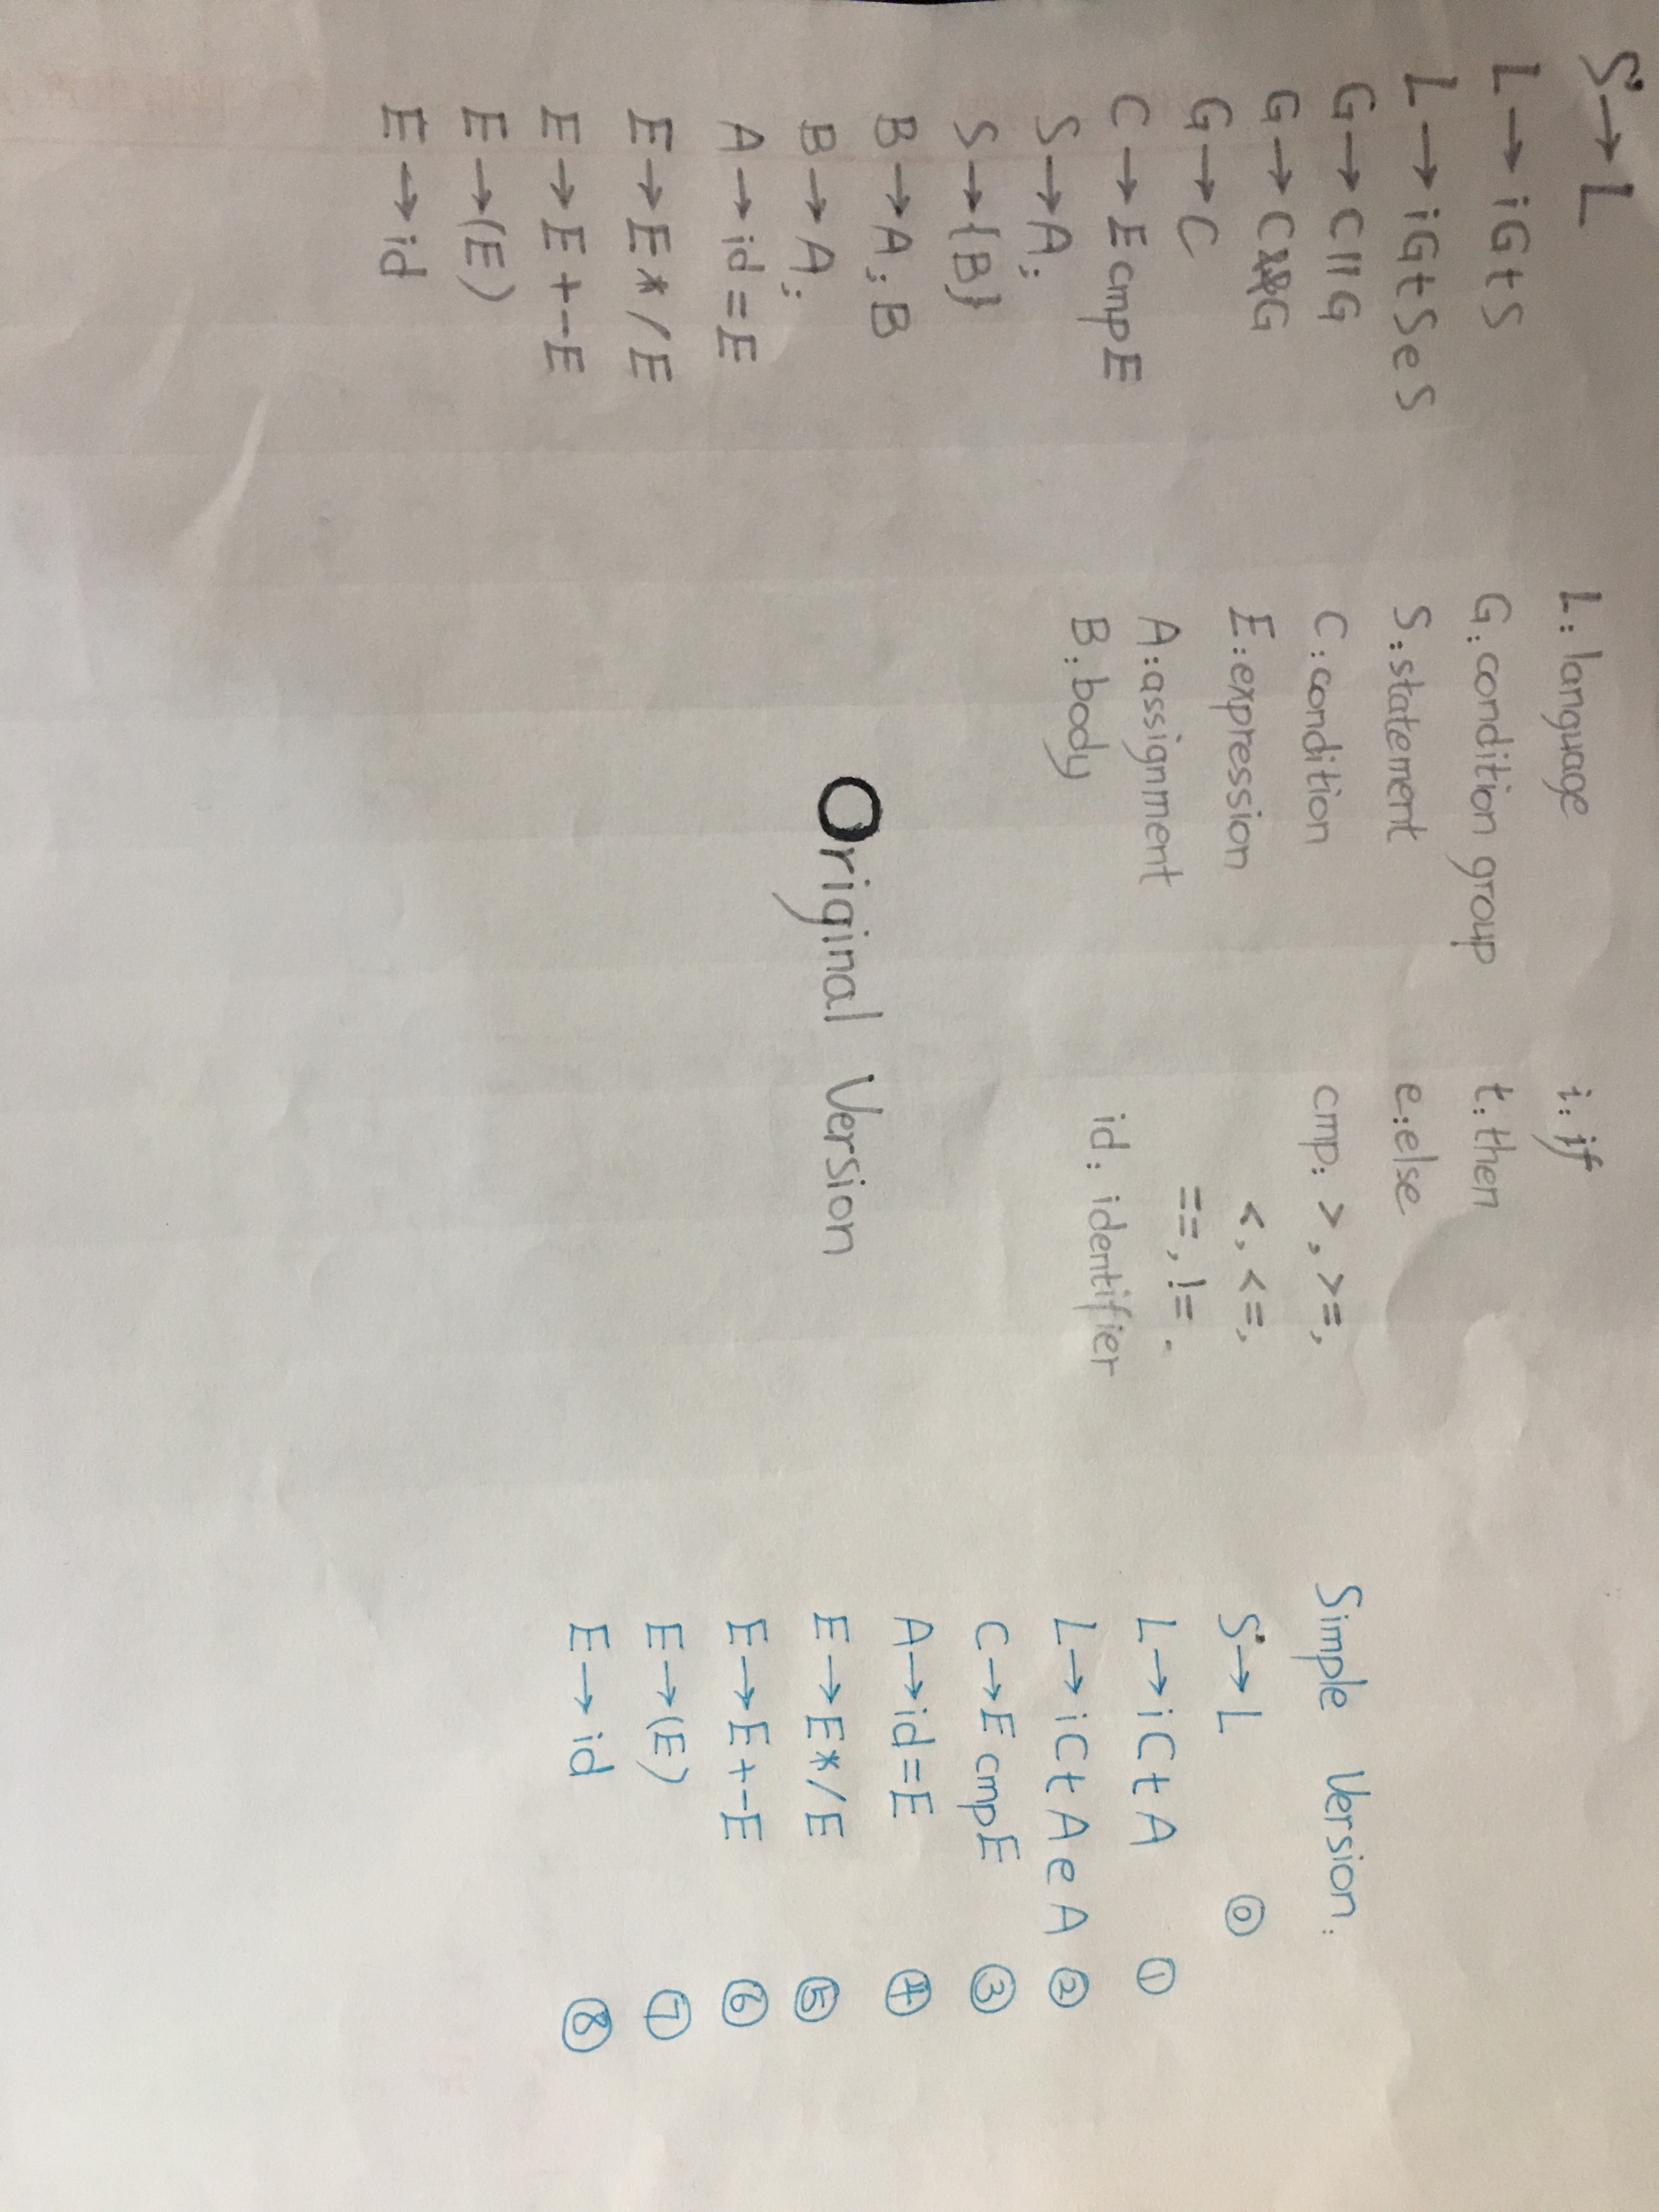 S'→L
L→iGtS
L→iGtSeS
G→C||G
G→C&&G
G→C
C→EcmpE
S→A;
S→{B}
B→A;B
B→A;
A→id=E
E→E*/E
E→E+-E
E→(E)
E→id
L: language
G: condition group
S: statement
C: condition
E: expression
A: assignment
B: body
i: if
t: then
e: else
cmp: >, >=,
<, <=,
==, != .
id: identifier
Original Version
Simple Version:
S'→L ⓪
L→iCtA ①
L→iCtAeA ②
C→EcmpE ③
A→id=E ④
E→E*/E ⑤
E→E+-E ⑥
E→(E) ⑦
E→id ⑧